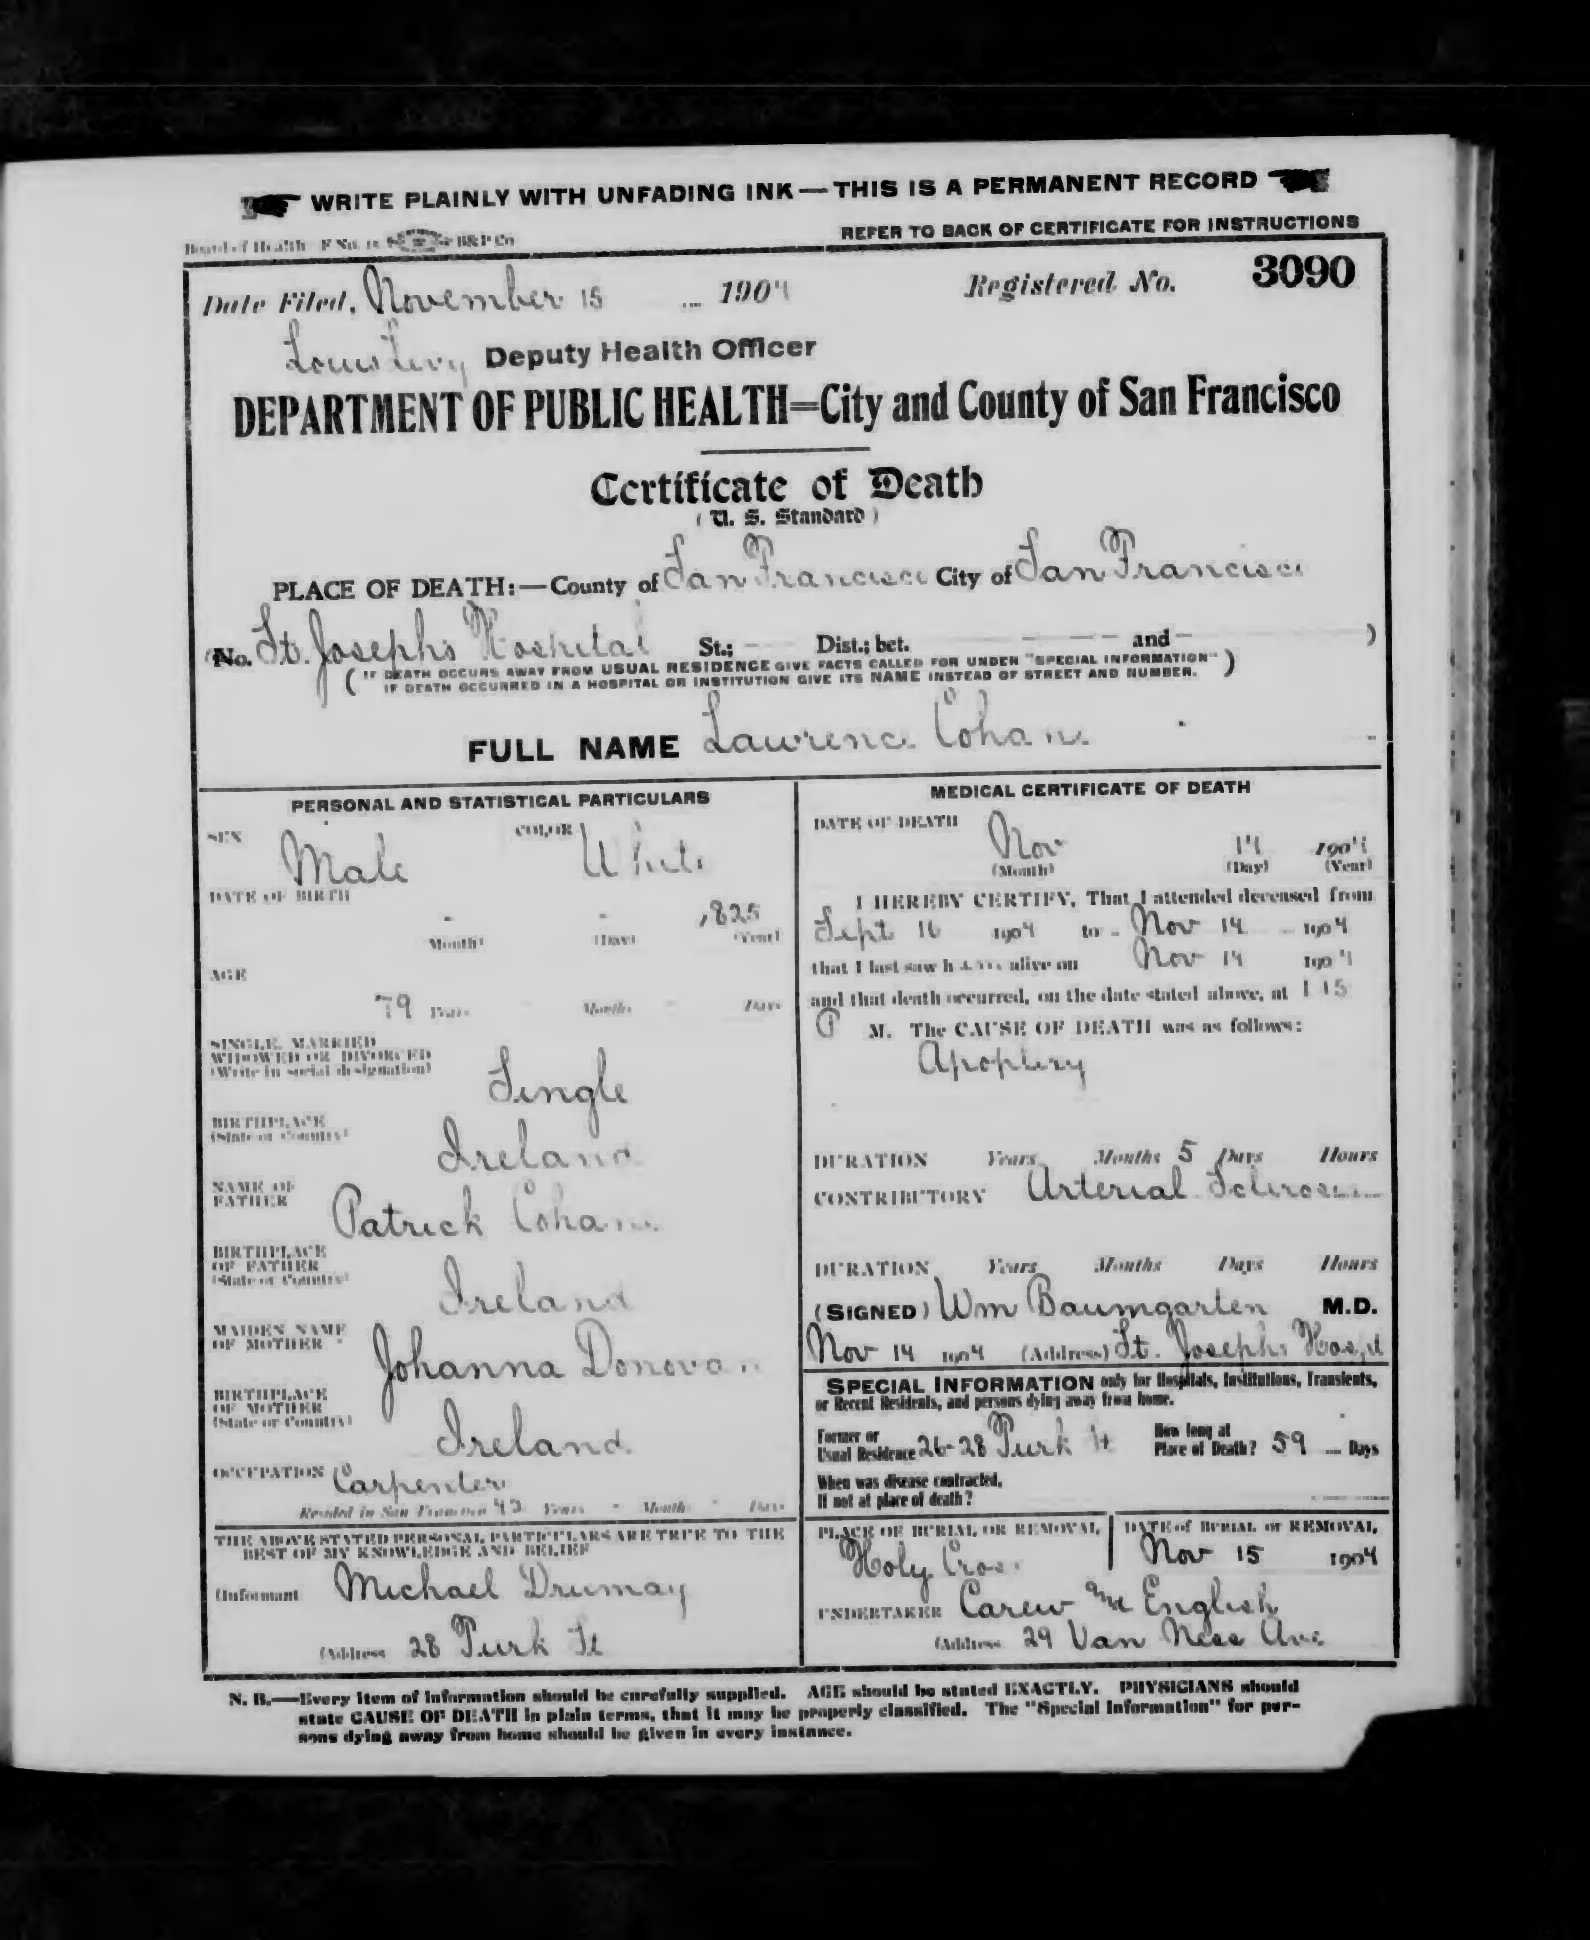 WRITE PLAINLY WITH UNFADING INK — THIS IS A PERMANENT RECORD
Board of Health F No. B&P Co
REFER TO BACK OF CERTIFICATE FOR INSTRUCTIONS
Date Filed, November 15 1904 Registered No. 3090
Louis Levy Deputy Health Officer
DEPARTMENT OF PUBLIC HEALTH=City and County of San Francisco
Certificate of Death
(U. S. Standard)
PLACE OF DEATH:—County of San Francisco City of San Francisco
(No. St. Josephs Hospital St.; Dist.; bet. and )
(IF DEATH OCCURS AWAY FROM USUAL RESIDENCE GIVE FACTS CALLED FOR UNDER "SPECIAL INFORMATION"
IF DEATH OCCURRED IN A HOSPITAL OR INSTITUTION GIVE ITS NAME INSTEAD OF STREET AND NUMBER.)
FULL NAME Lawrence Cohane
PERSONAL AND STATISTICAL PARTICULARS
SEX Male COLOR White
DATE OF BIRTH
1825
(Month) (Day) (Year)
AGE
79 Years Months Days
SINGLE, MARRIED
WIDOWED OR DIVORCED
(Write in social designation) Single
BIRTHPLACE
(State or Country) Ireland
NAME OF
FATHER Patrick Cohane
BIRTHPLACE
OF FATHER
(State or Country) Ireland
MAIDEN NAME
OF MOTHER Johanna Donovan
BIRTHPLACE
OF MOTHER
(State or Country) Ireland
OCCUPATION Carpenter
Resided in San Francisco Years Months Days
THE ABOVE STATED PERSONAL PARTICULARS ARE TRUE TO THE
BEST OF MY KNOWLEDGE AND BELIEF
(Informant Michael Drumay
(Address 28 Turk St
MEDICAL CERTIFICATE OF DEATH
DATE OF DEATH
Nov 14 1904
(Month) (Day) (Year)
I HEREBY CERTIFY, That I attended deceased from
Sept 16 1904 to Nov 14 1904
that I last saw him alive on Nov 14 1904
and that death occurred, on the date stated above, at 1 15
P M. The CAUSE OF DEATH was as follows:
Apoplexy
DURATION Years Months 5 Days Hours
CONTRIBUTORY Arterial Sclerosis
DURATION Years Months Days Hours
(SIGNED) Wm Baumgarten M.D.
Nov 14 1904 (Address) St. Josephs Hospl
SPECIAL INFORMATION only for Hospitals, Institutions, Transients,
or Recent Residents, and persons dying away from home.
Former or
Usual Residence 26-28 Turk St
How long at
Place of Death? 59 Days
When was disease contracted,
If not at place of death?
PLACE OF BURIAL OR REMOVAL
Holy Cross
DATE of BURIAL or REMOVAL
Nov 15 1904
UNDERTAKER Carew and English
(Address 29 Van Ness Ave
N. B.—Every item of information should be carefully supplied. AGE should be stated EXACTLY. PHYSICIANS should
state CAUSE OF DEATH in plain terms, that it may be properly classified. The "Special Information" for per-
sons dying away from home should be given in every instance.